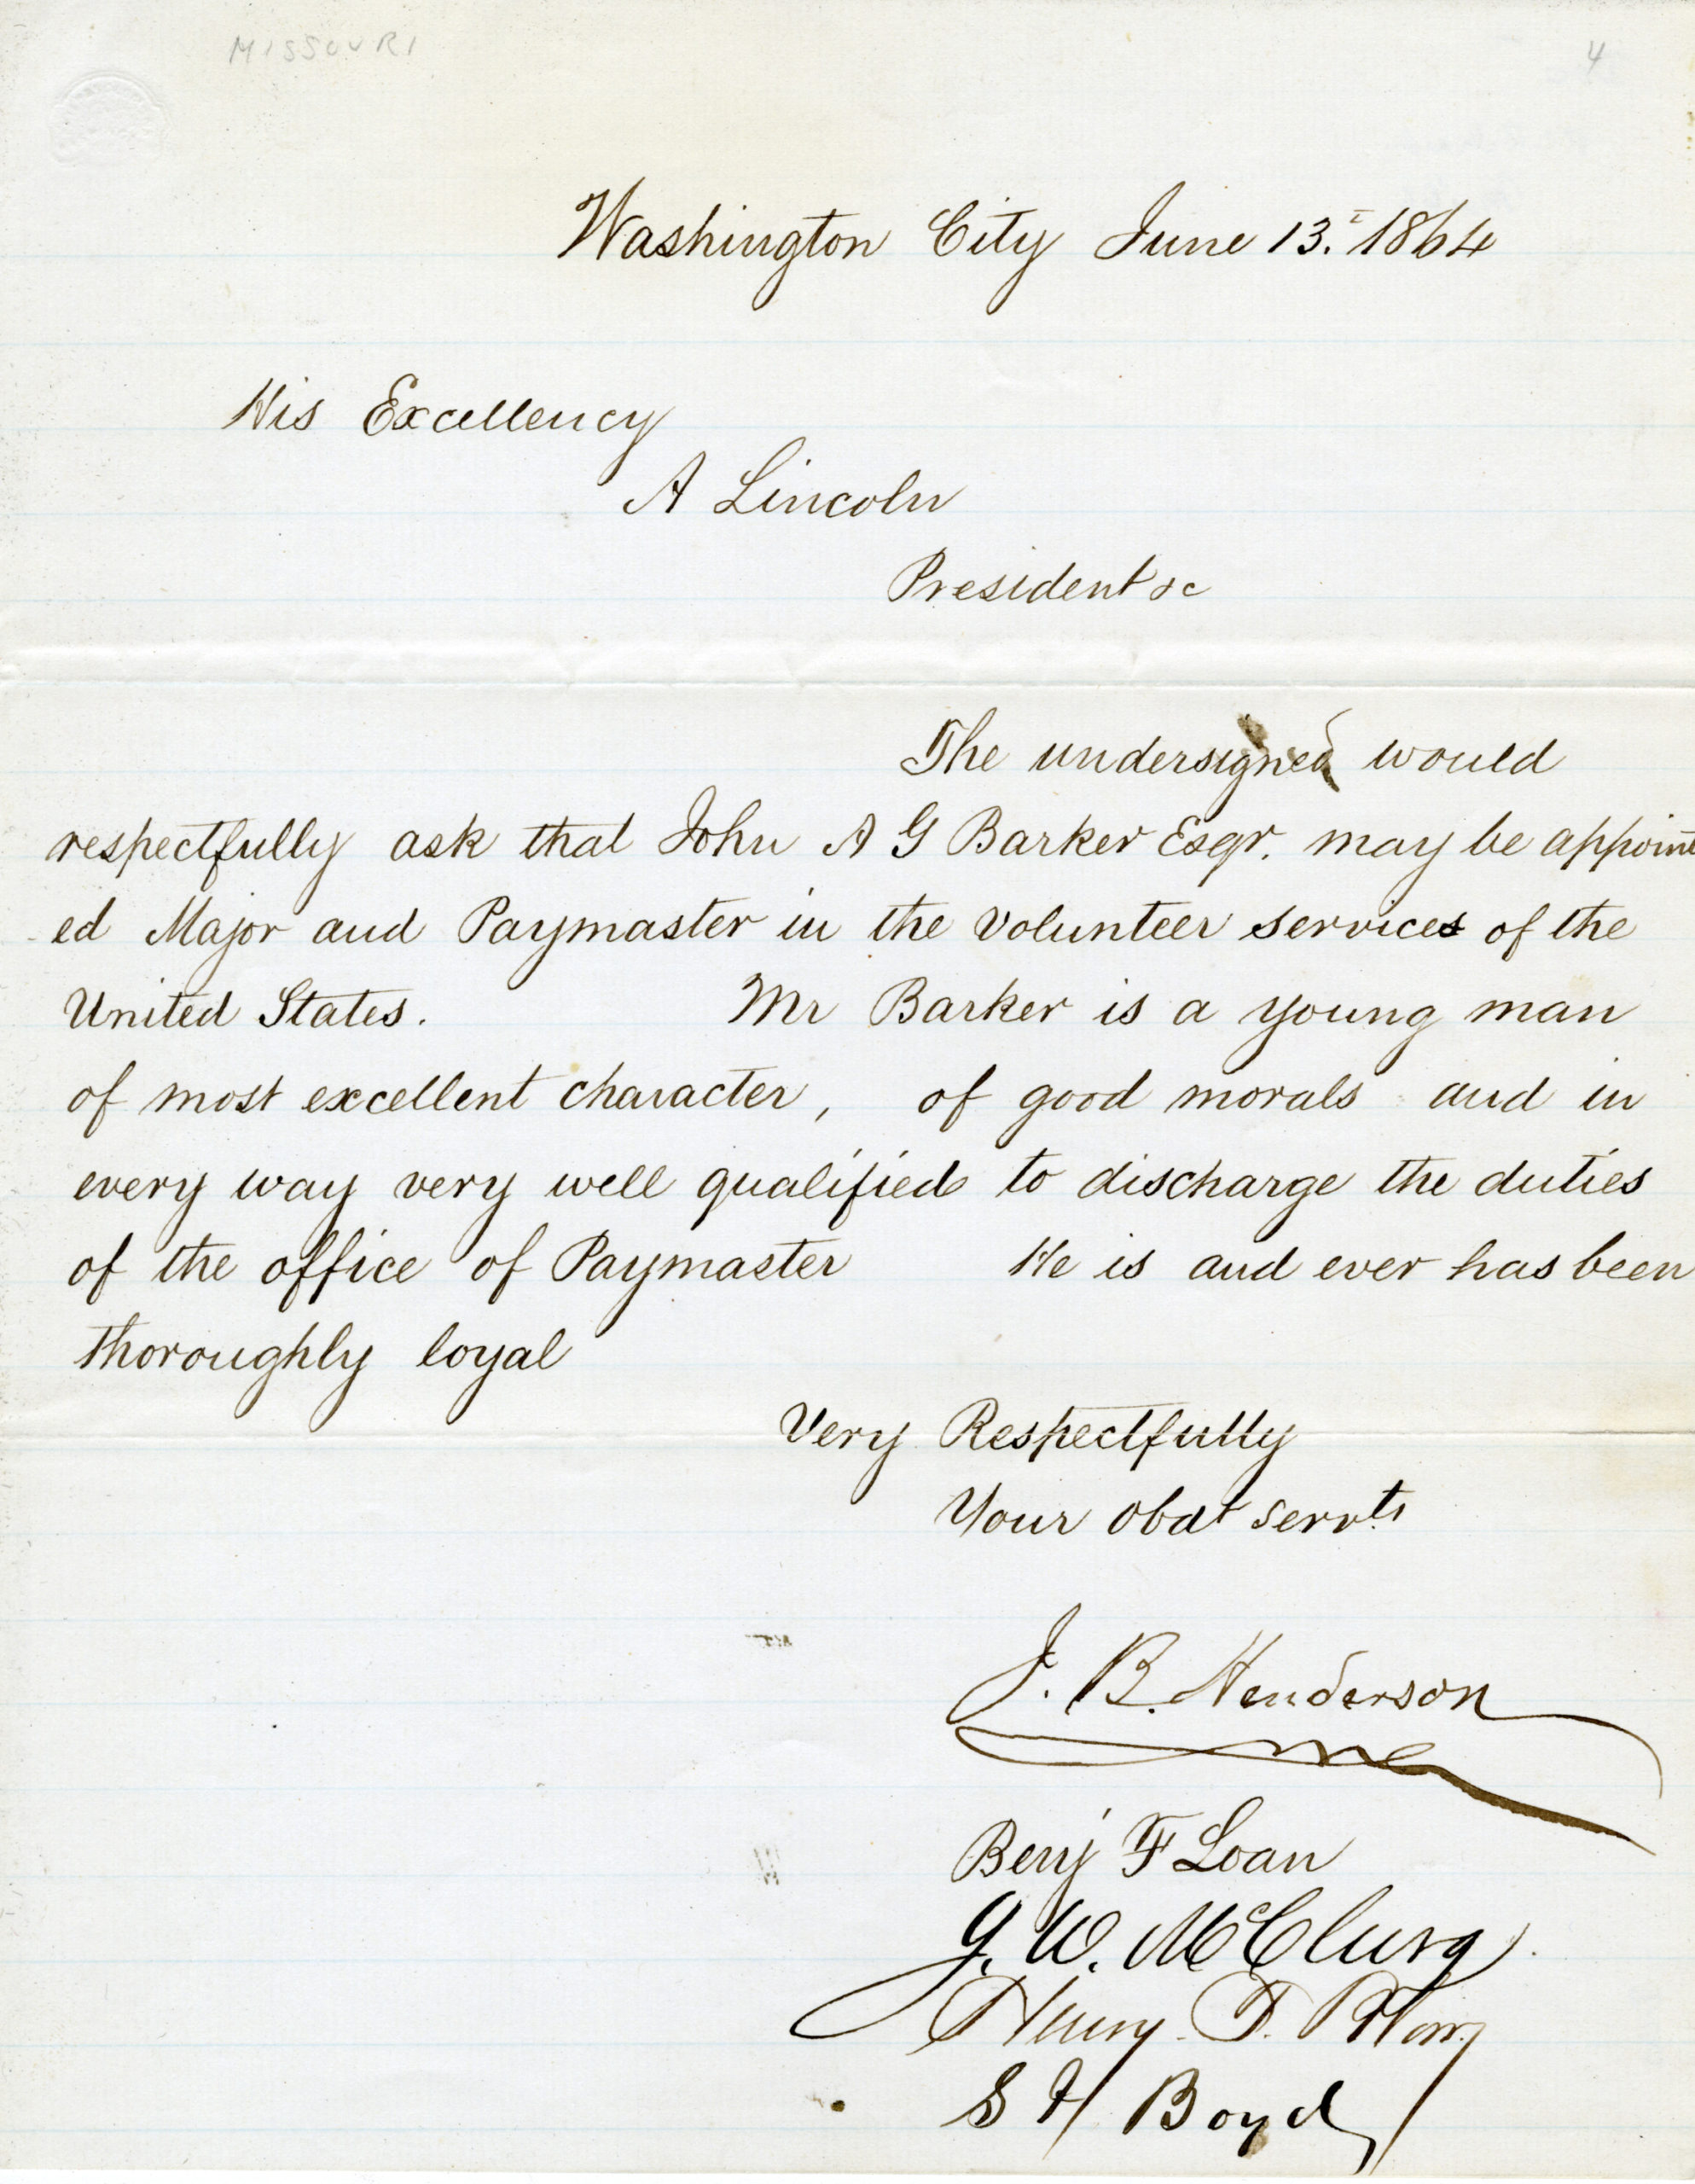 MISSOURI
4
Washington City June 13. 1864
His Excellency
A Lincoln
President &c
The undersigned would
respectfully ask that John A G Barker Esqr. may be appoint
ed Major and Paymaster in the volunteer services of the
United States. Mr Barker is a young man
of most excellent character, of good morals and in
every way very well qualified to discharge the duties
of the office of Paymaster He is and ever has been
thoroughly loyal
Very Respectfully
Your obdt servts
J. B. Henderson
Benj F Loan
J. W. McClurg
Henry T. Blow
S H Boyd